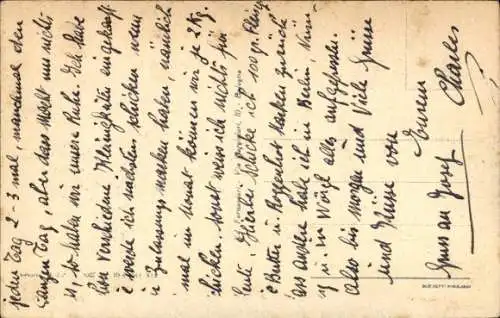 jeden Tag 2-3 mal, manchmal den
ganzen Tag, aber das macht uns nichts
, so haben wir unsere Ruhe. Ich habe
hier verschiedene Kleinigkeiten eingekauft
werde ich nächstens schicken wenn
Zulassungsmarken haben, nämlich
mal im Monat können wir je 2 Kg.
schicken sonst weis ich nichts für
heute. Hierbei schicke ich 100 gr. Fleisch
Butter u. Roggenbrot Karten zurück
das andere habe ich in Berlin,
u. in Wörgl alles aufgegessen.
Also bis morgen und Viele Grüsse
und Küsse von
Eurem
Charles
Gruss an Josef